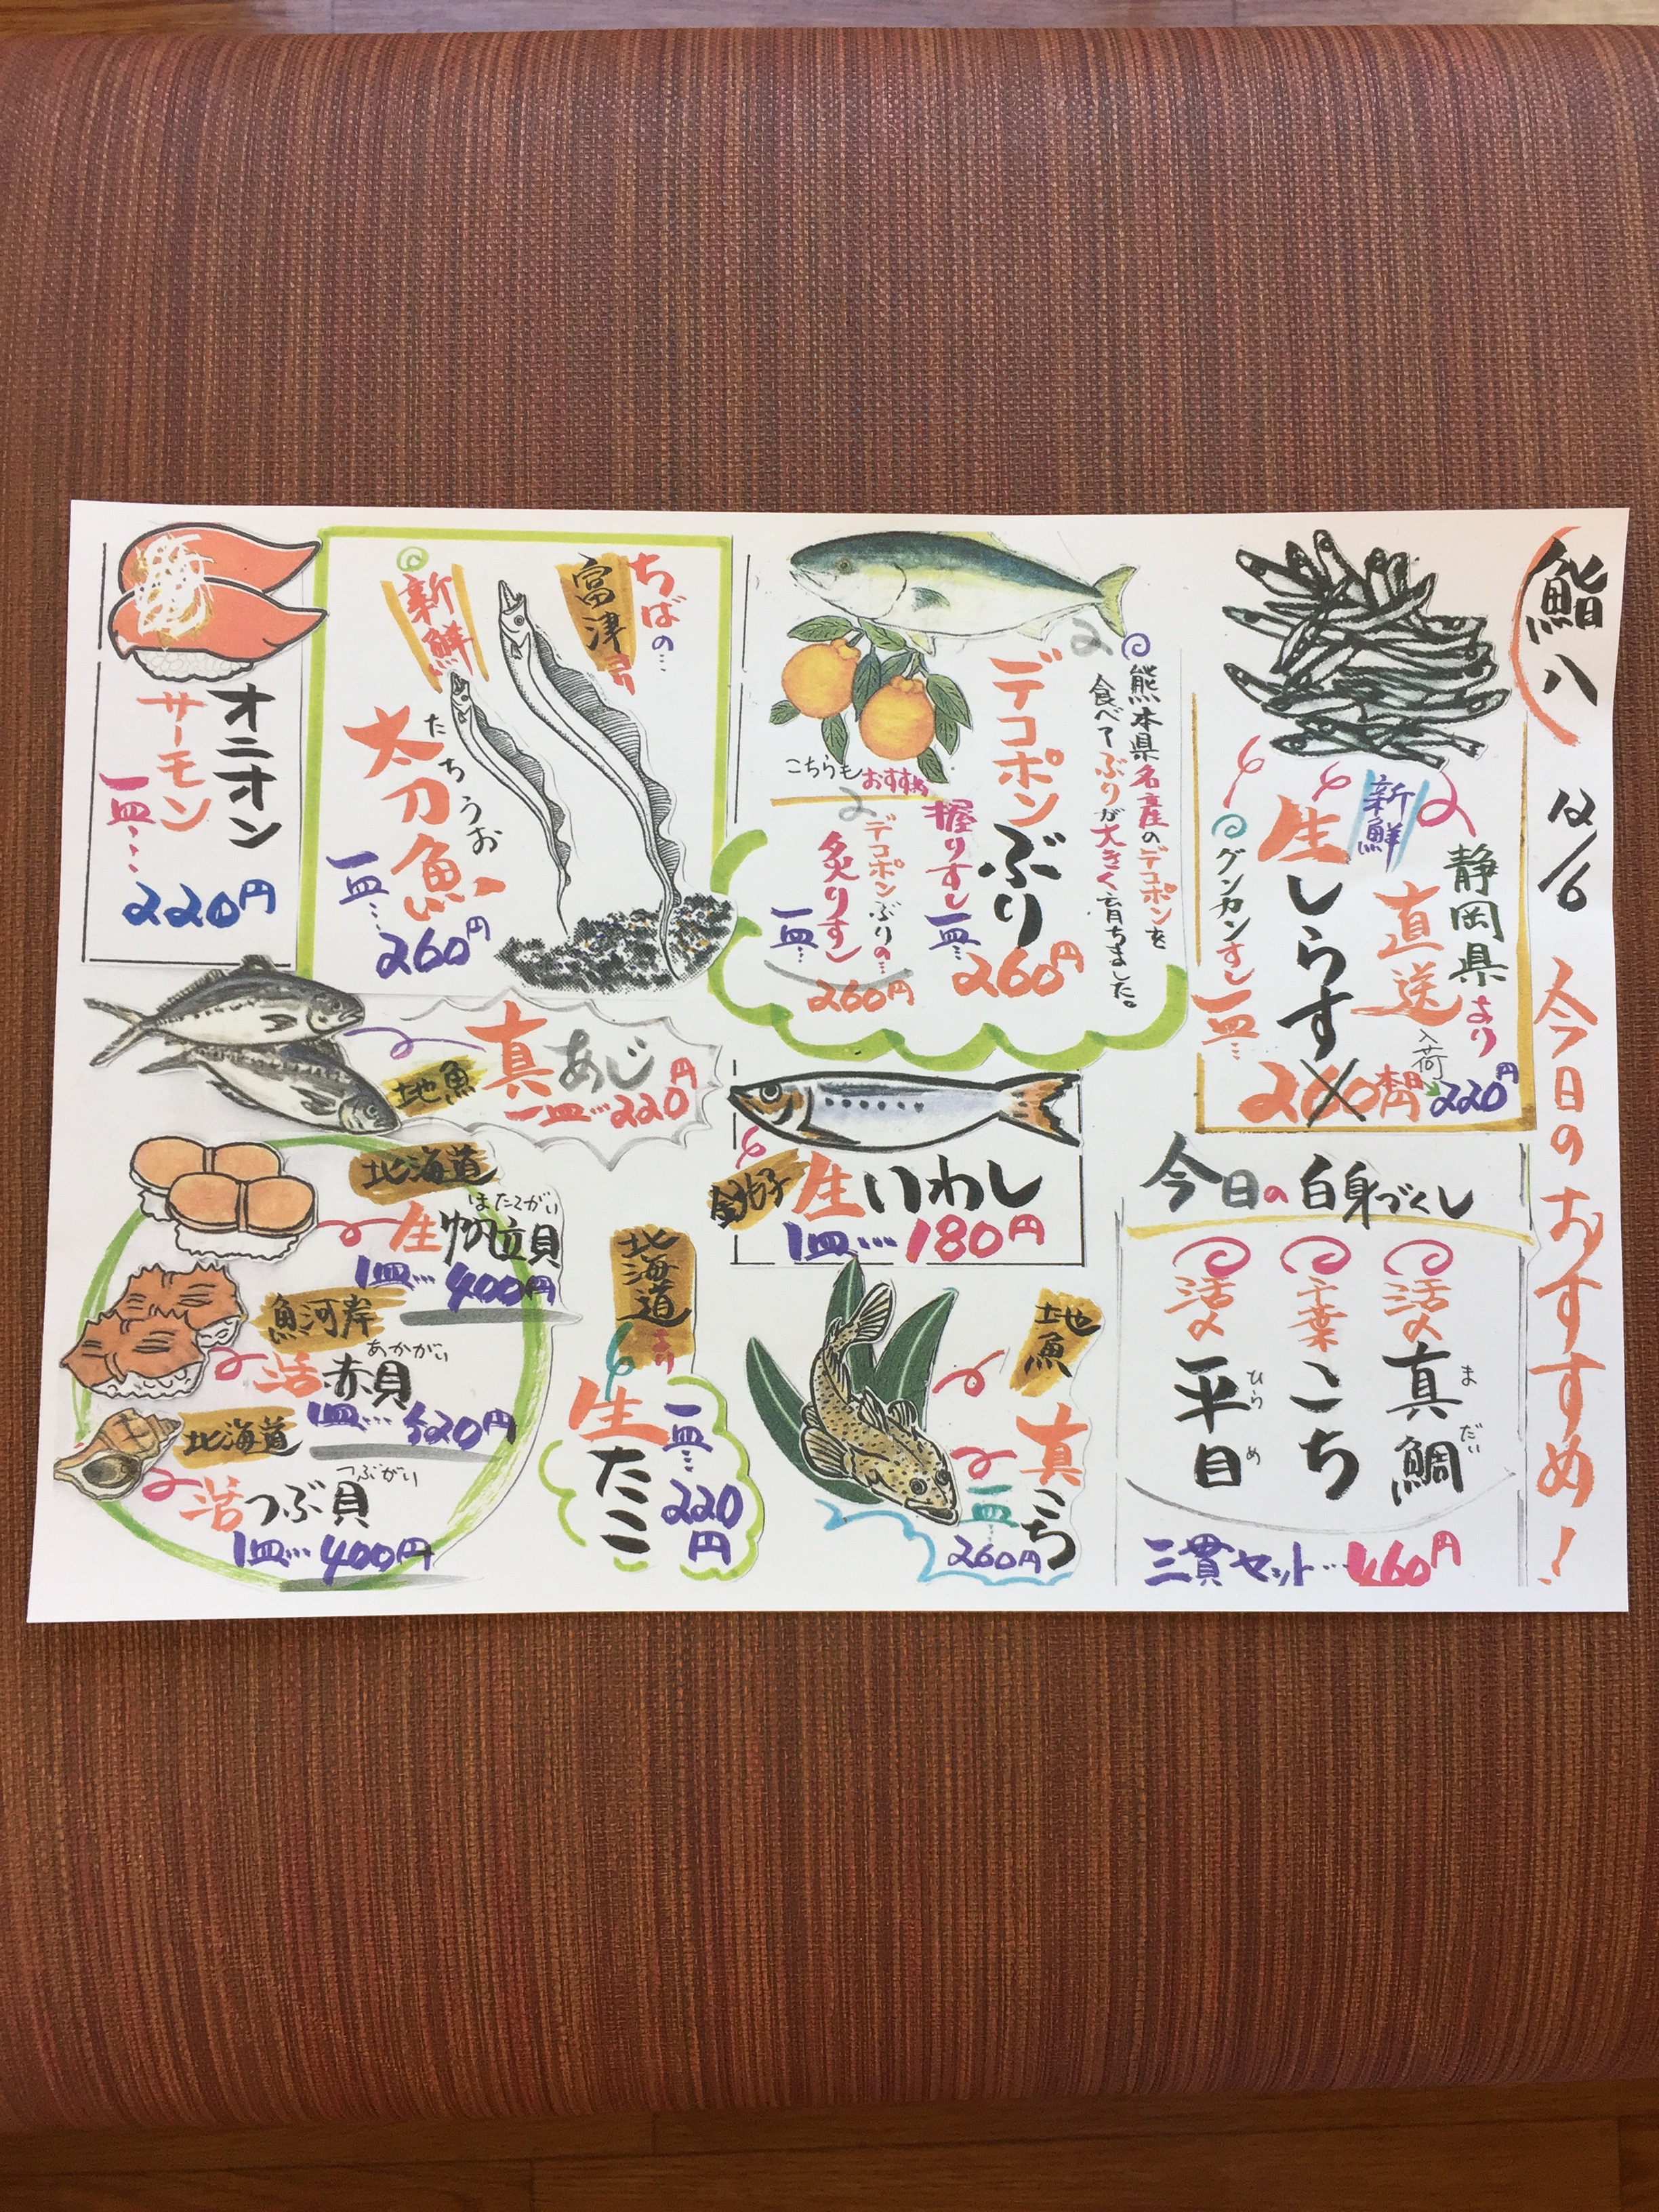 鮨八
12/6
今日のおすすめ!
静岡県より
直送
入荷
新鮮
生しらす
グンカンすし
一皿…
260円
220円
熊本県名産のデコポンを
食べてぶりが大きく育ちました。
デコポンぶり
握りすし
一皿…
260円
こちらもおすすめ
デコポンぶりの…
炙りすし
一皿…
260円
ちばの…
富津
新鮮
太刀魚
たちうお
一皿…
260円
オニオン
サーモン
一皿…
220円
地魚
真あじ
一皿…220円
銚子
生いわし
1皿…180円
今日の白身づくし
活〆
真鯛
まだい
千葉
こち
活〆
平目
ひらめ
三貫セット…460円
地魚
真こち
一皿
260円
北海道より
生たこ
一皿…
220円
北海道
ほたてがい
生帆立貝
1皿…400円
魚河岸
あかがい
活赤貝
1皿…520円
北海道
つぶがい
活つぶ貝
1皿…400円